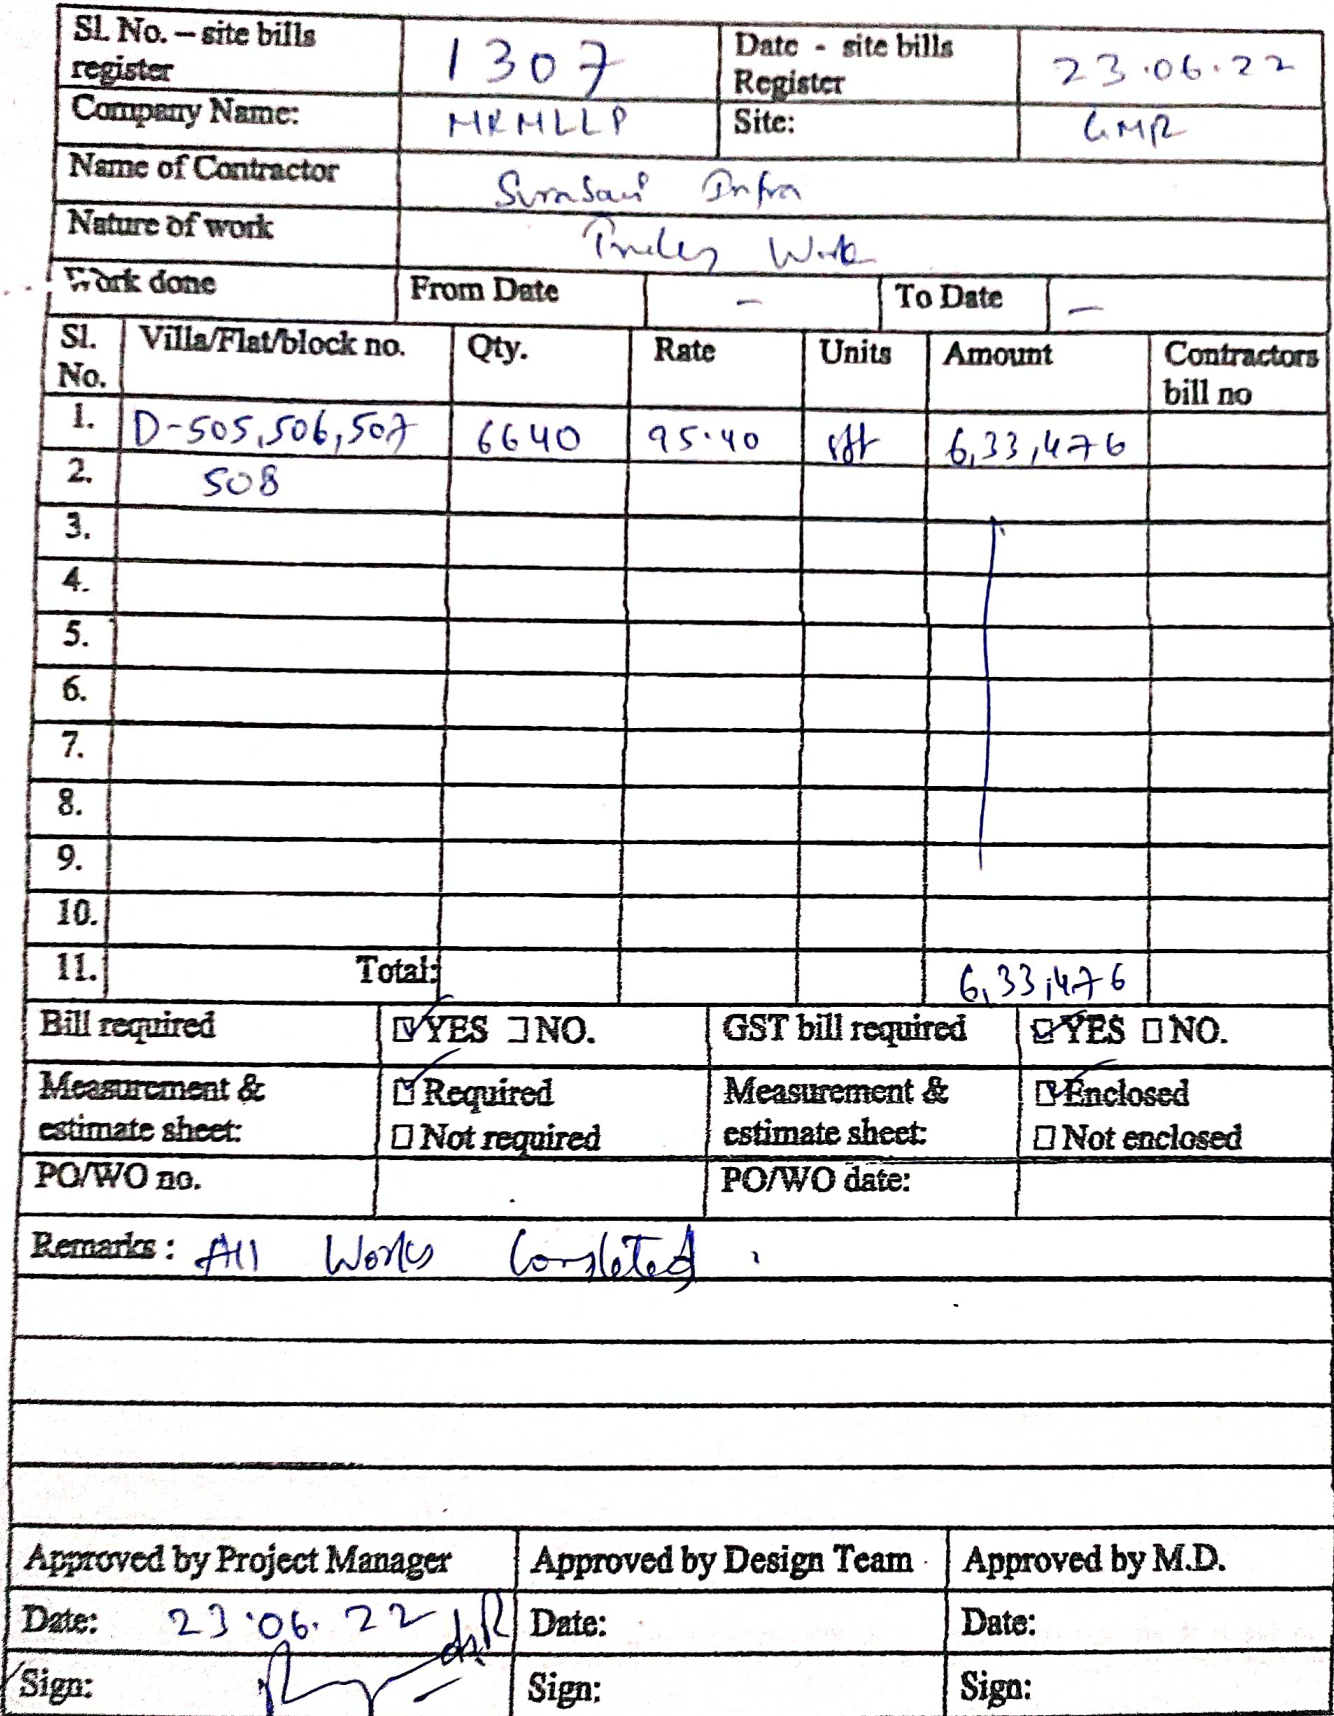 Sl. No. – site bills register 1307 Date - site bills Register 23.06.22
Company Name: MRMLLP Site: GMR
Name of Contractor Infra
Nature of work Work
Work done From Date – To Date –
Sl. No. Villa/Flat/block no. Qty. Rate Units Amount Contractors bill no
1. D-505,506,507 6640 95.40 sft 6,33,476
2. 508
3.
4.
5.
6.
7.
8.
9.
10.
11. Total: 6,33,476
Bill required ☑YES ☐NO. GST bill required ☑YES ☐NO.
Measurement & estimate sheet: ☑Required Measurement & estimate sheet: ☑Enclosed
☐Not required ☐Not enclosed
PO/WO no. PO/WO date:
Remarks: All Works Completed.
Approved by Project Manager Approved by Design Team Approved by M.D.
Date: 23.06.22 Date: Date:
Sign: Sign: Sign: